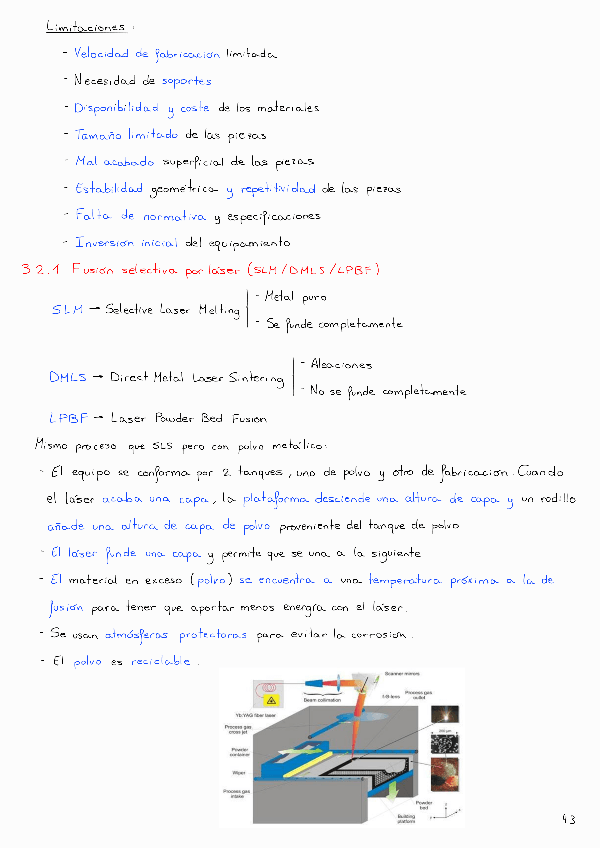 Limitaciones :
- Velocidad de fabricación limitada
- Necesidad de soportes
- Disponibilidad y coste de los materiales
- Tamaño limitado de las piezas
- Mal acabado superficial de las piezas
- Estabilidad geométrica y repetitividad de las piezas
- Falta de normativa y especificaciones
- Inversión inicial del equipamiento
3.2.1 Fusión selectiva por láser (SLM/DMLS/LPBF)
SLM → Selective Laser Melting
- Metal puro
- Se funde completamente
DMLS → Direct Metal Laser Sintering
- Aleaciones
- No se funde completamente
LPBF → Laser Powder Bed Fusion
Mismo proceso que SLS pero con polvo metálico:
- El equipo se conforma por 2 tanques, uno de polvo y otro de fabricación. Cuando
el láser acaba una capa, la plataforma desciende una altura de capa y un rodillo
añade una altura de capa de polvo proveniente del tanque de polvo
- El láser funde una capa y permite que se una a la siguiente
- El material en exceso (polvo) se encuentra a una temperatura próxima a la de
fusión para tener que aportar menos energía con el láser.
- Se usan atmósferas protectoras para evitar la corrosión.
- El polvo es reciclable.
Scanner mirrors
Beam collimation
f-θ-lens
Process gas
outlet
Yb:YAG fiber laser
Process gas
cross jet
Powder
container
Wiper
Process gas
intake
Powder
bed
Building
platform
43